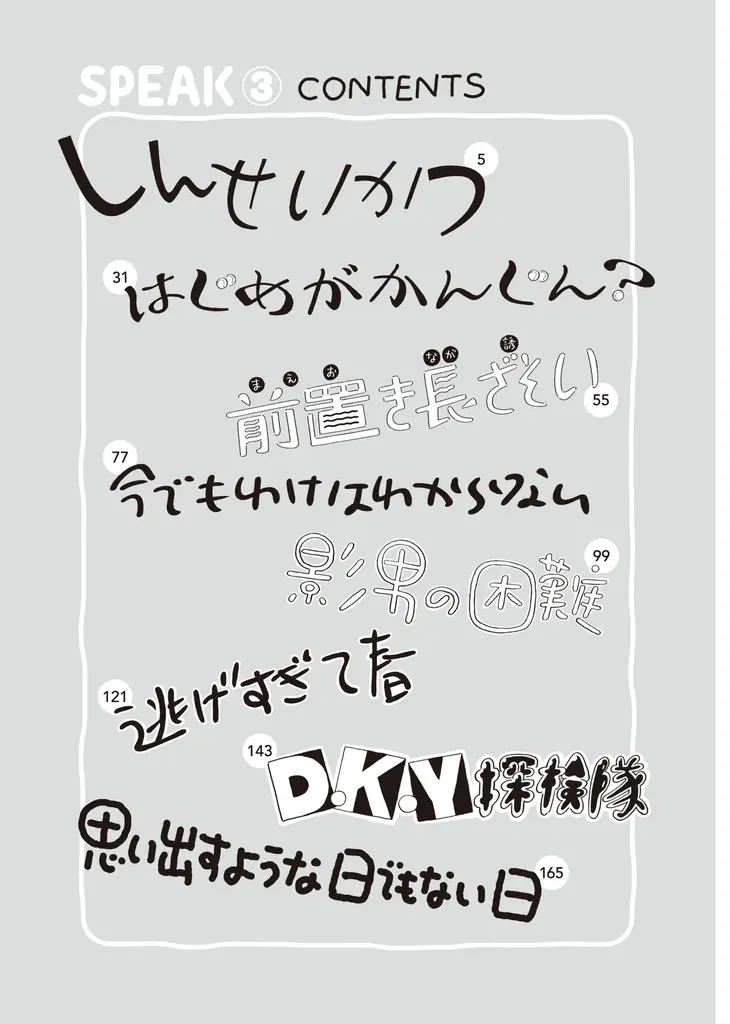 SPEAK③ CONTENTS
しんせいかつ 5
31 はじめがかんじん?
まえお なが 誘
前置き長ざそい 55
77 今でもわけはわからない
影男の困難 99
121 逃げすぎて春
143 D.K.Y探検隊
思い出すような日でもない日 165